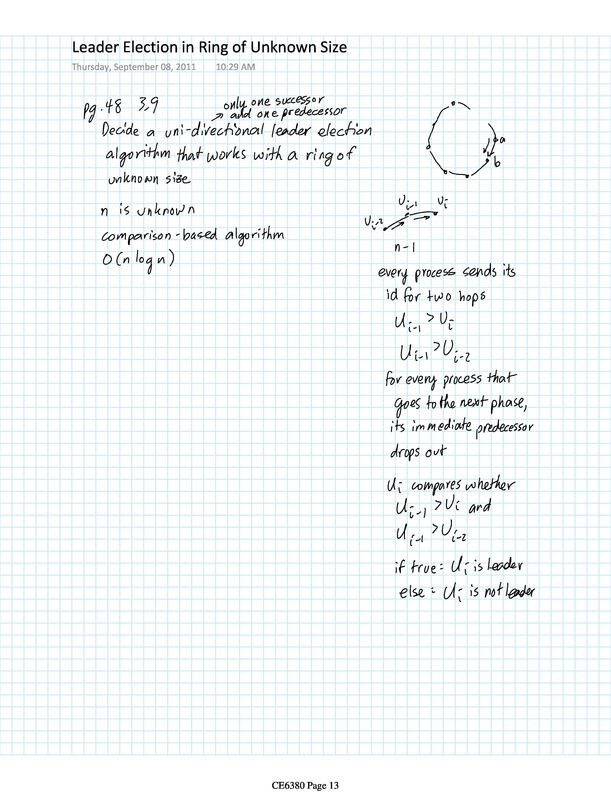 Leader Election in Ring of Unknown Size
Thursday, September 08, 2011 10:29 AM
pg.48 3.9
only one successor
→ and one predecessor
Decide a uni-directional leader election
algorithm that works with a ring of
unknown size
n is unknown
comparison-based algorithm
O(n log n)
a
b
U_{i-2} U_{i-1} U_i
n-1
every process sends its
id for two hops
U_{i-1} > U_i
U_{i-1} > U_{i-2}
for every process that
goes to the next phase,
its immediate predecessor
drops out
U_i compares whether
U_{i-1} > U_i and
U_{i-1} > U_{i-2}
if true: U_i is leader
else: U_i is not leader
CE6380 Page 13